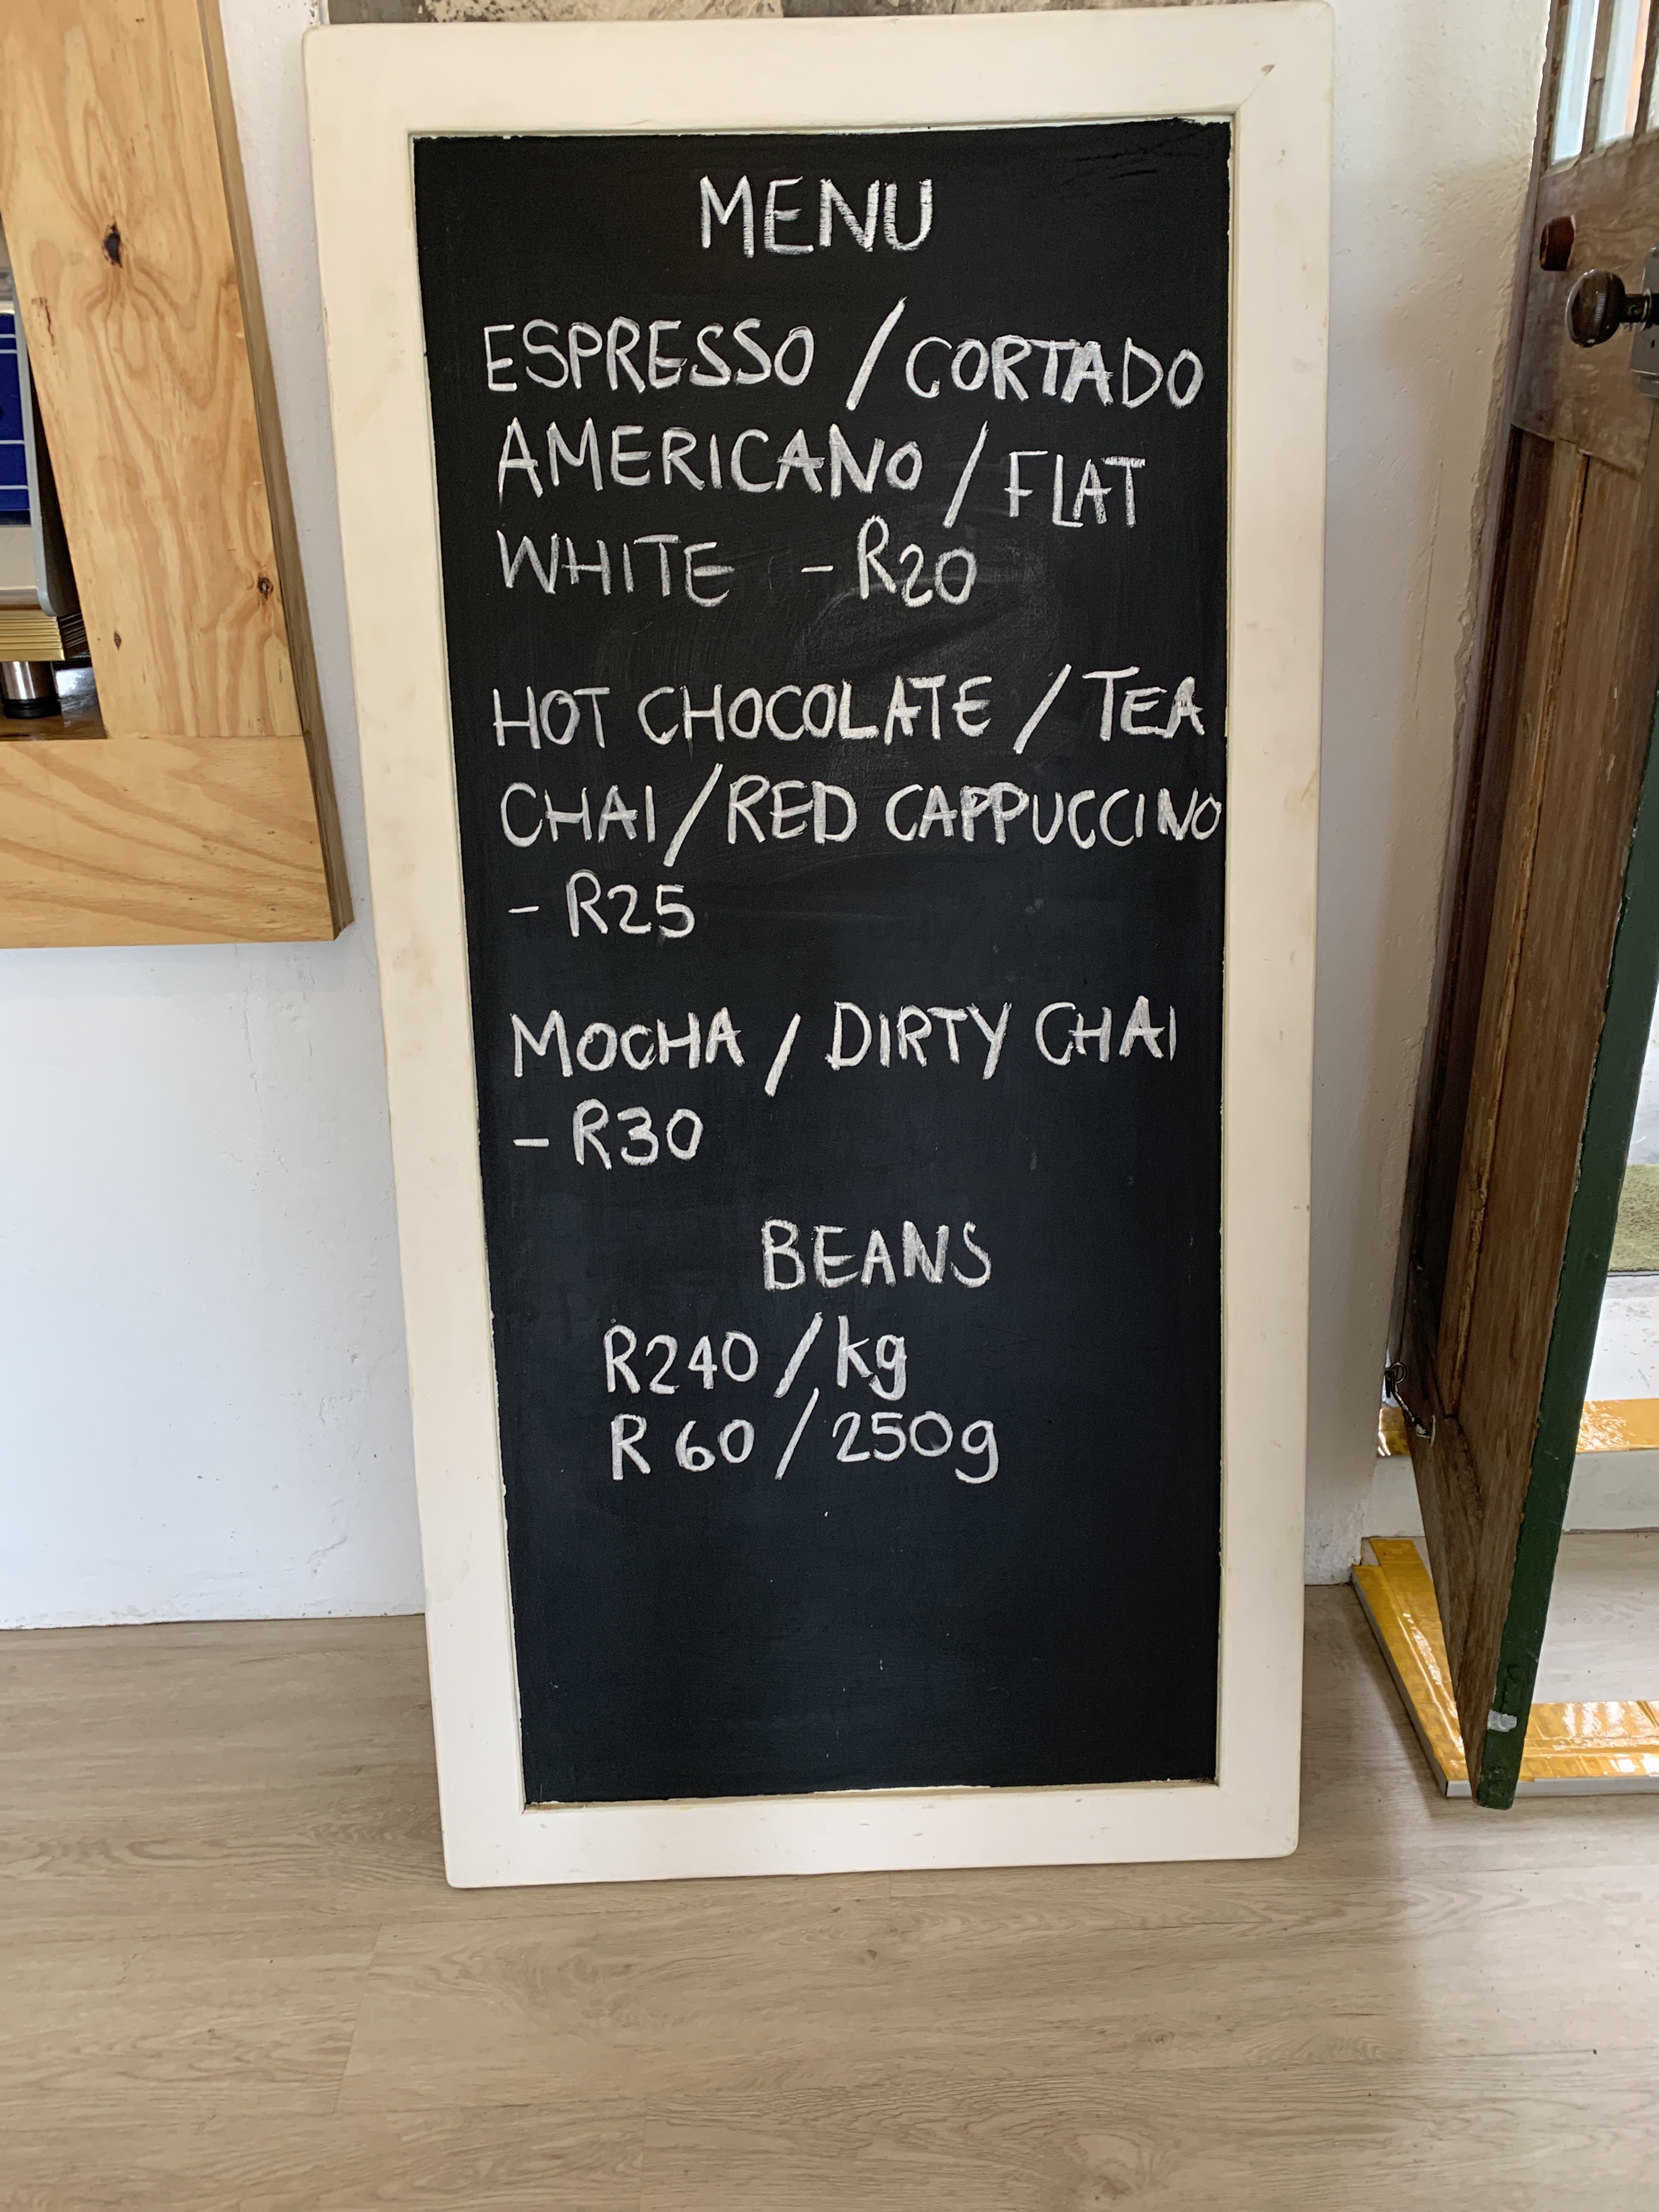 MENU
ESPRESSO / CORTADO
AMERICANO / FLAT
WHITE - R20
HOT CHOCOLATE / TEA
CHAI / RED CAPPUCCINO
- R25
MOCHA / DIRTY CHAI
- R30
BEANS
R240 / kg
R 60 / 250g